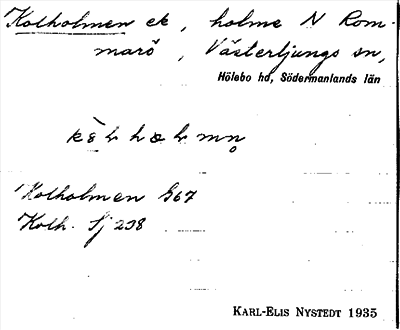 Kolholmen ek, holme N Rom-
marö, Västerljungs sn,
Hölebo hd, Södermanlands län
Kolholmen G67
Kolh. Sj 238
KARL-ELIS NYSTEDT 1935